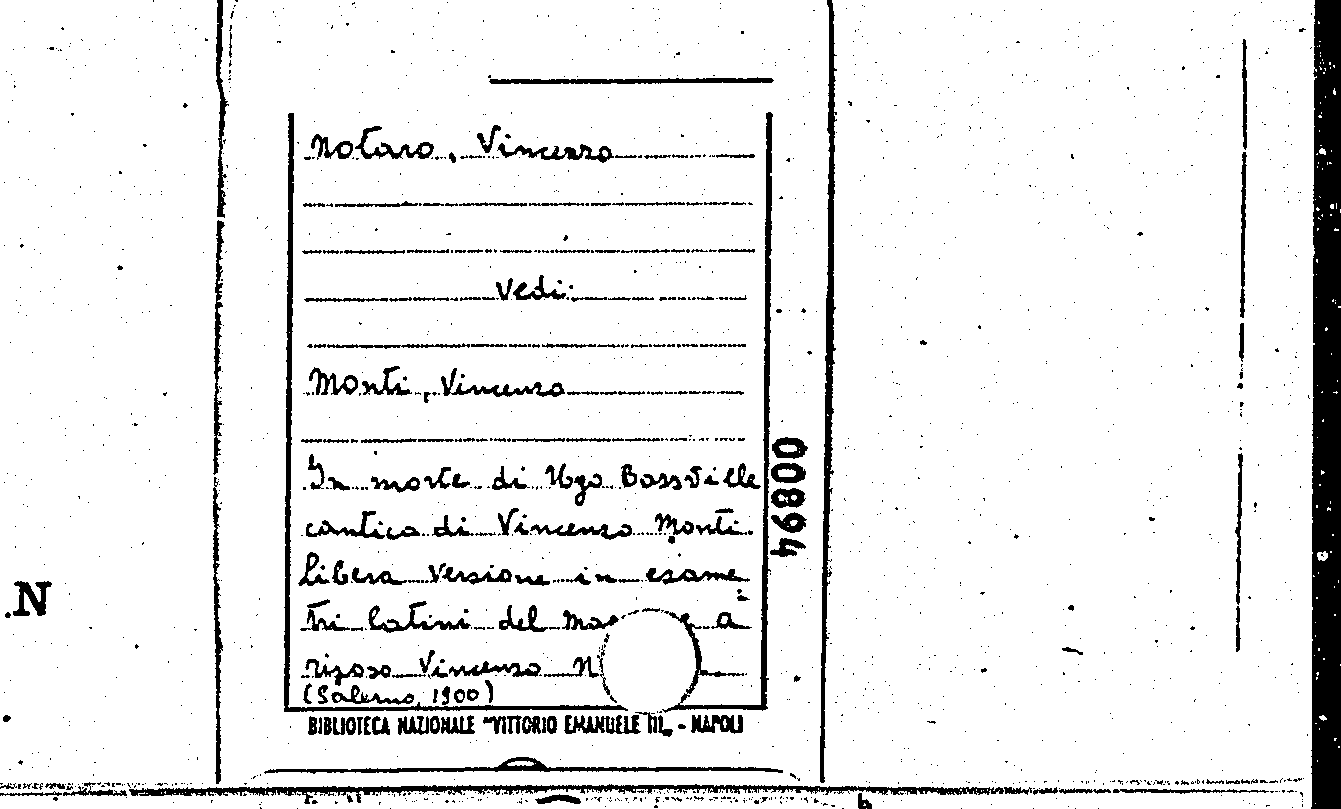 Notaro, Vincenzo
Vedi:
Monti, Vincenzo
In morte di Ugo Bassville
cantica di Vincenzo Monti.
Libera versione in esame=
tri latini del
rigoso Vincenzo N
(Salerno, 1900)
BIBLIOTECA NAZIONALE "VITTORIO EMANUELE III„ - NAPOLI
00894
.N